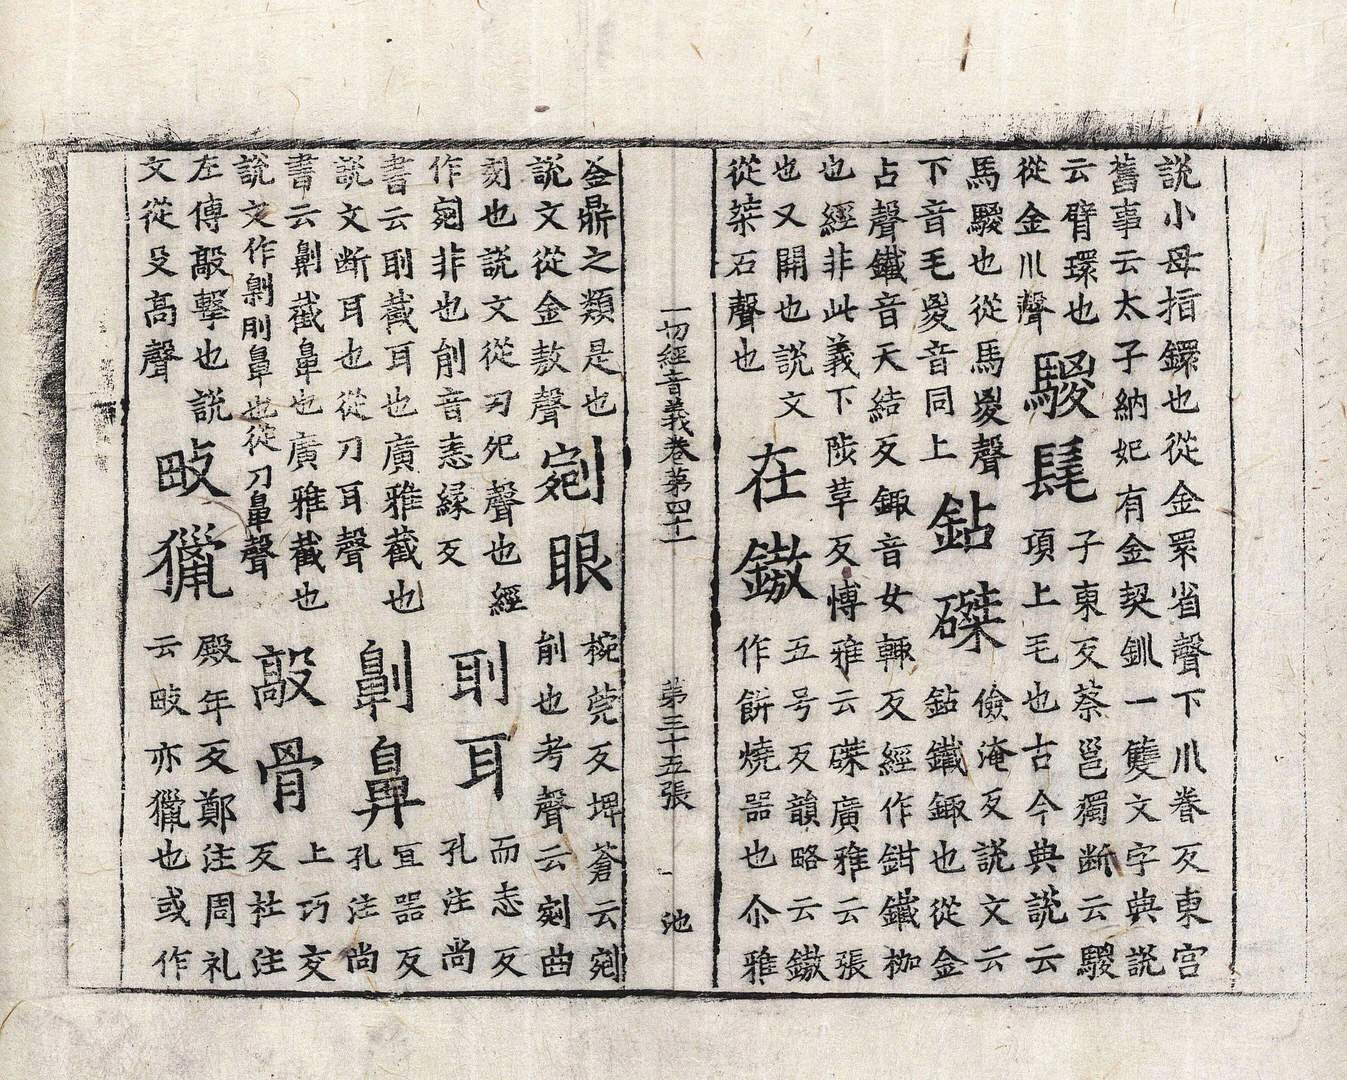 說小母指鐶也從金睘省聲下川眷反東宮
舊事云太子納妃有金契釧一雙文字典說
云臂環也
從金川聲
騣髦
子東反蔡邕獨斷云騣
項上毛也古今典說云
馬騣也從馬㚇聲
下音毛㚇音同上
鉆磔
儉淹反說文云
鉆鐵鋷也從金
占聲鐵音天結反鋷音女輒反經作鉗鐵枷
也經非此義下陟草反博雅云磔廣雅云張
也又開也說文
從桀石聲也
在鏾
五号反韻略云鏾
作餅燒器也尒雅
一切經音義卷第四十一 第三十五張 池
金鼎之類是也
說文從金敖聲
剜眼
椀莞反埤蒼云剜
削也考聲云剜曲
刻也說文從刃夗聲也經
作剜非也削音恚緣反
刵耳
而志反
孔注尚
書云刵截耳也廣雅截也
說文断耳也從刀耳聲
劓鼻
冝器反
孔注尚
書云劓截鼻也廣雅截也
說文作劓刖鼻也從刀鼻聲
敲骨
上巧交
反杜注
左傳敲擊也說
文從攴高聲
畋獵
殿年反鄭注周礼
云畋亦獵也或作